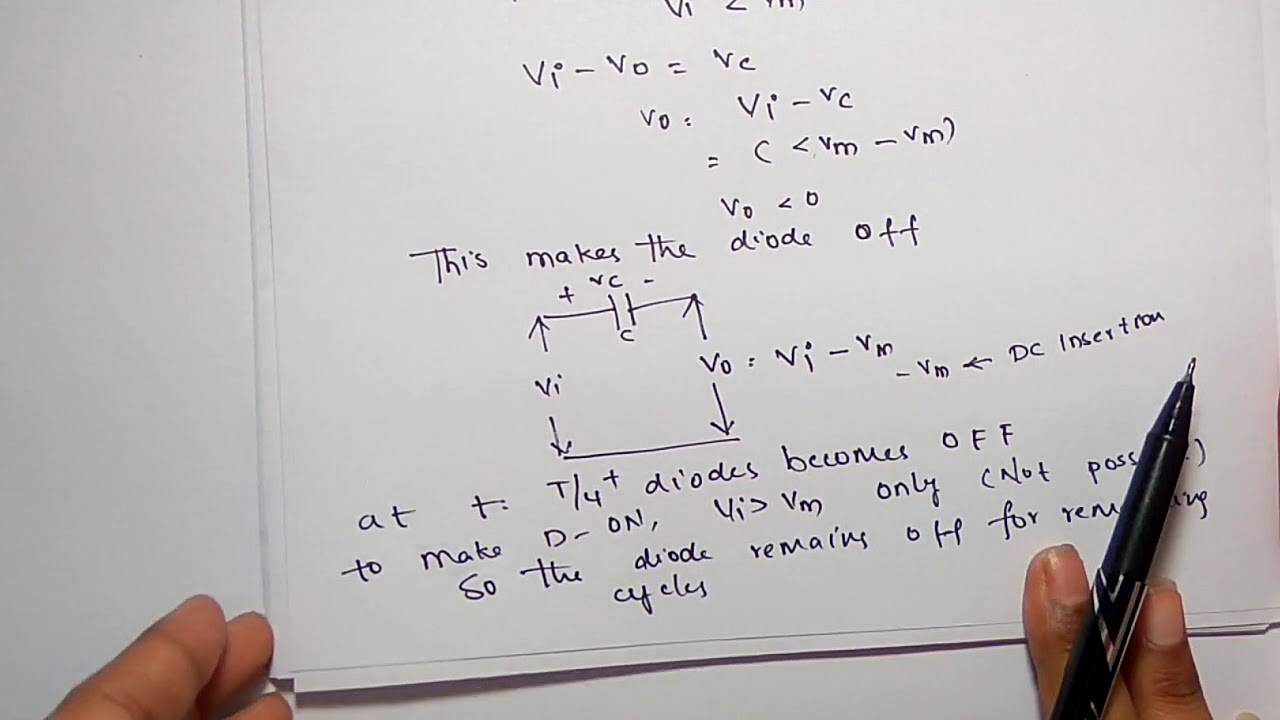 Vi < Vm
Vi - Vo = Vc
Vo = Vi - Vc
= ( < Vm - Vm)
Vo < 0
This makes the diode off
+ Vc -
C
Vi
Vo = Vi - Vm
- Vm ← DC Insertion
at t = T/4+ diodes becomes OFF
to make D-ON, Vi > Vm only (Not
So the diode remains off for
cycles